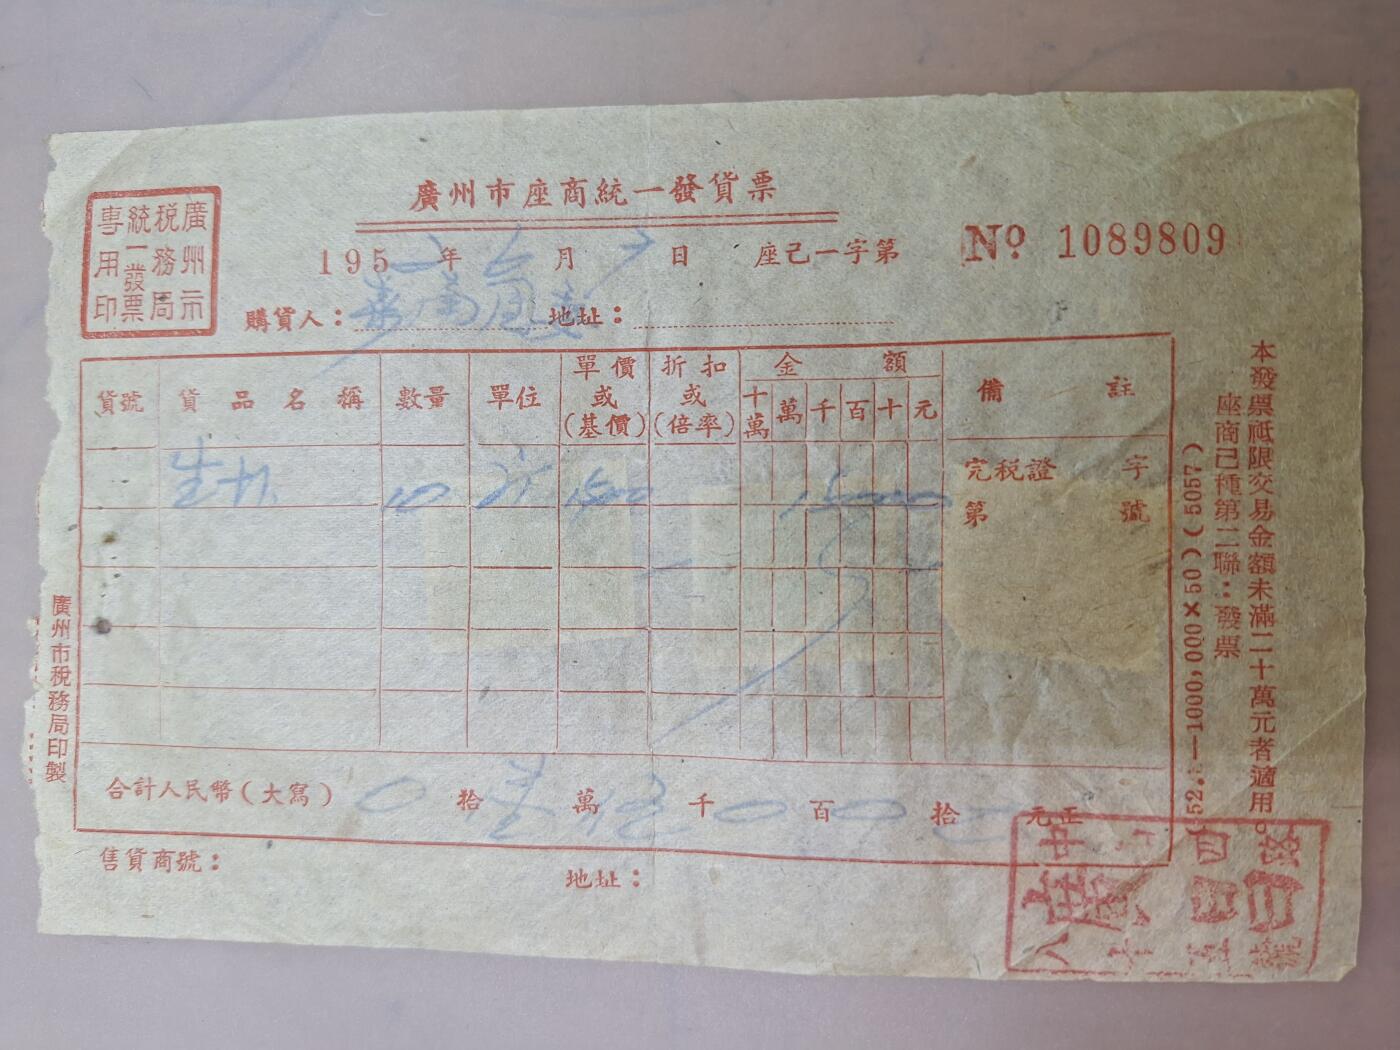 廣州市座商統一發貨票
廣州市
稅務局
統一發票
專用印
195 年 月 日 座己一字第 № 1089809
購貨人： 地址：
貨號 貨品名稱 數量 單位 單價或(基價) 折扣或(倍率) 金額 備註
十萬 萬 千 百 十 元
10 斤 1500 15000
完稅證 字
第 號
合計人民幣(大寫) 0 拾 壹 萬 伍 千 0 百 0 拾 0 元正
售貨商號： 地址：
廣州市稅務局印製
本發票祗限交易金額未滿二十萬元者適用。
座商己種第二聯：發票
—1000,000×50)(5057)